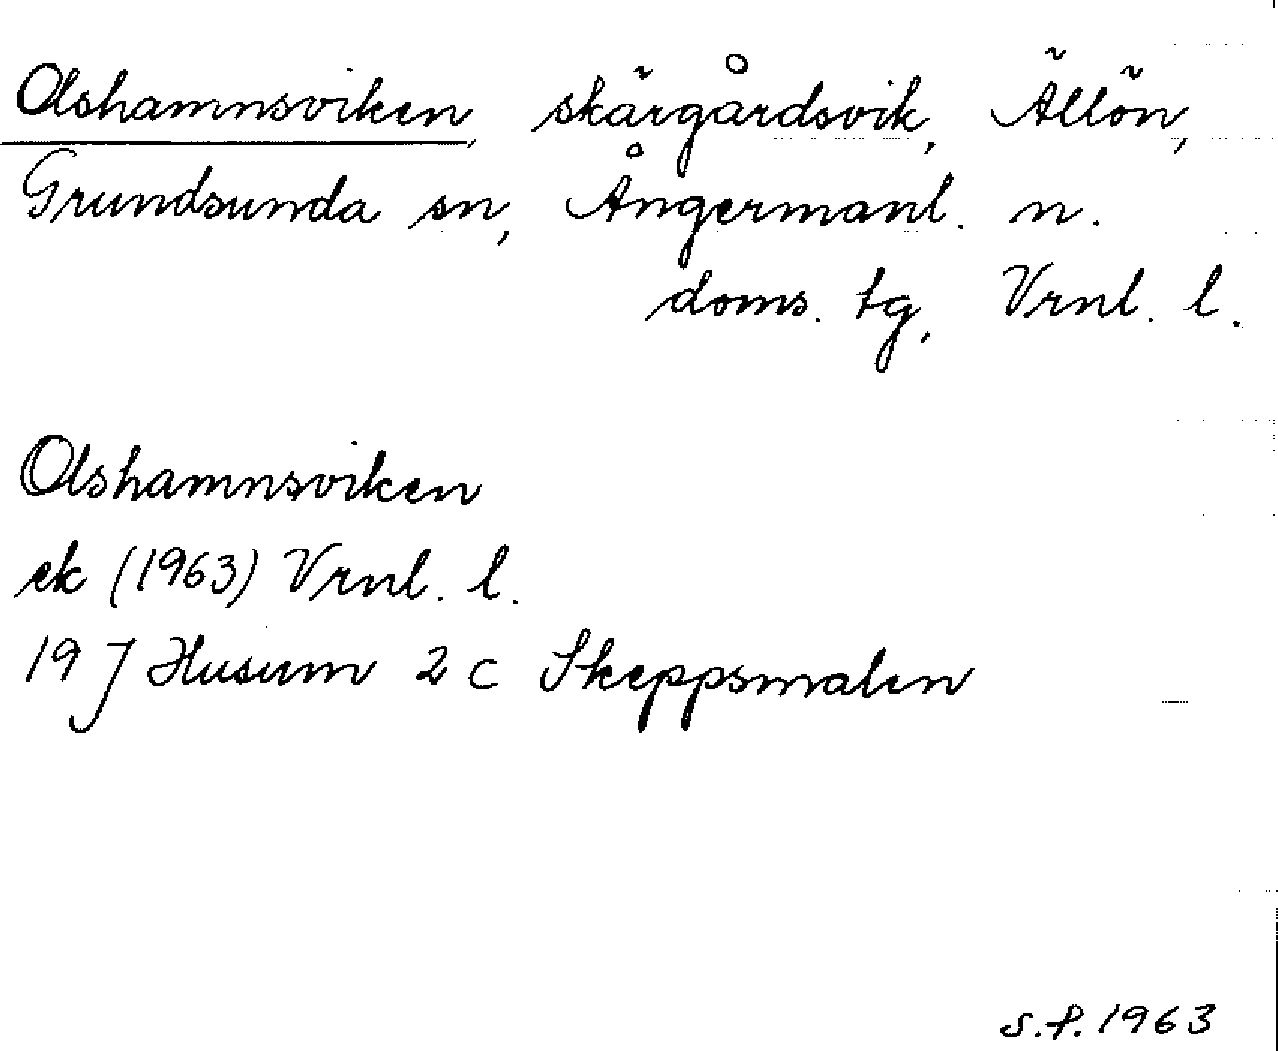 Olshamnsviken, skärgårdsvik, Ällön,
Grundsunda sn, Ångermanl. n.
doms. tg, Vrnl. l.
Olshamnsviken
ek (1963) Vrnl. l.
19 J Husum 2 c Skeppsmalen
s.f. 1963